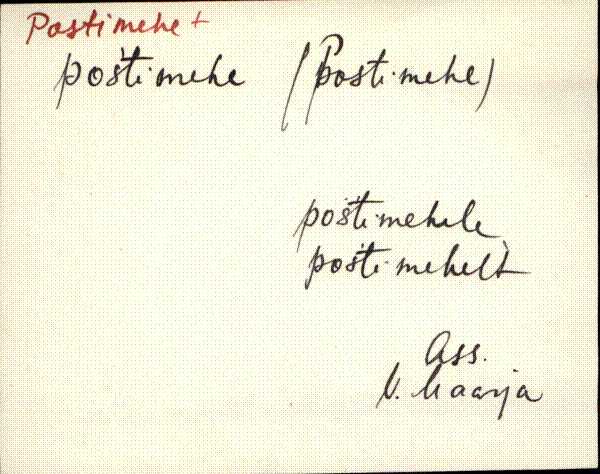 Postimehe +
pośtimehe (Postimehe)
pośtimehele
pośtimehelt
Ass.
V. Maarja